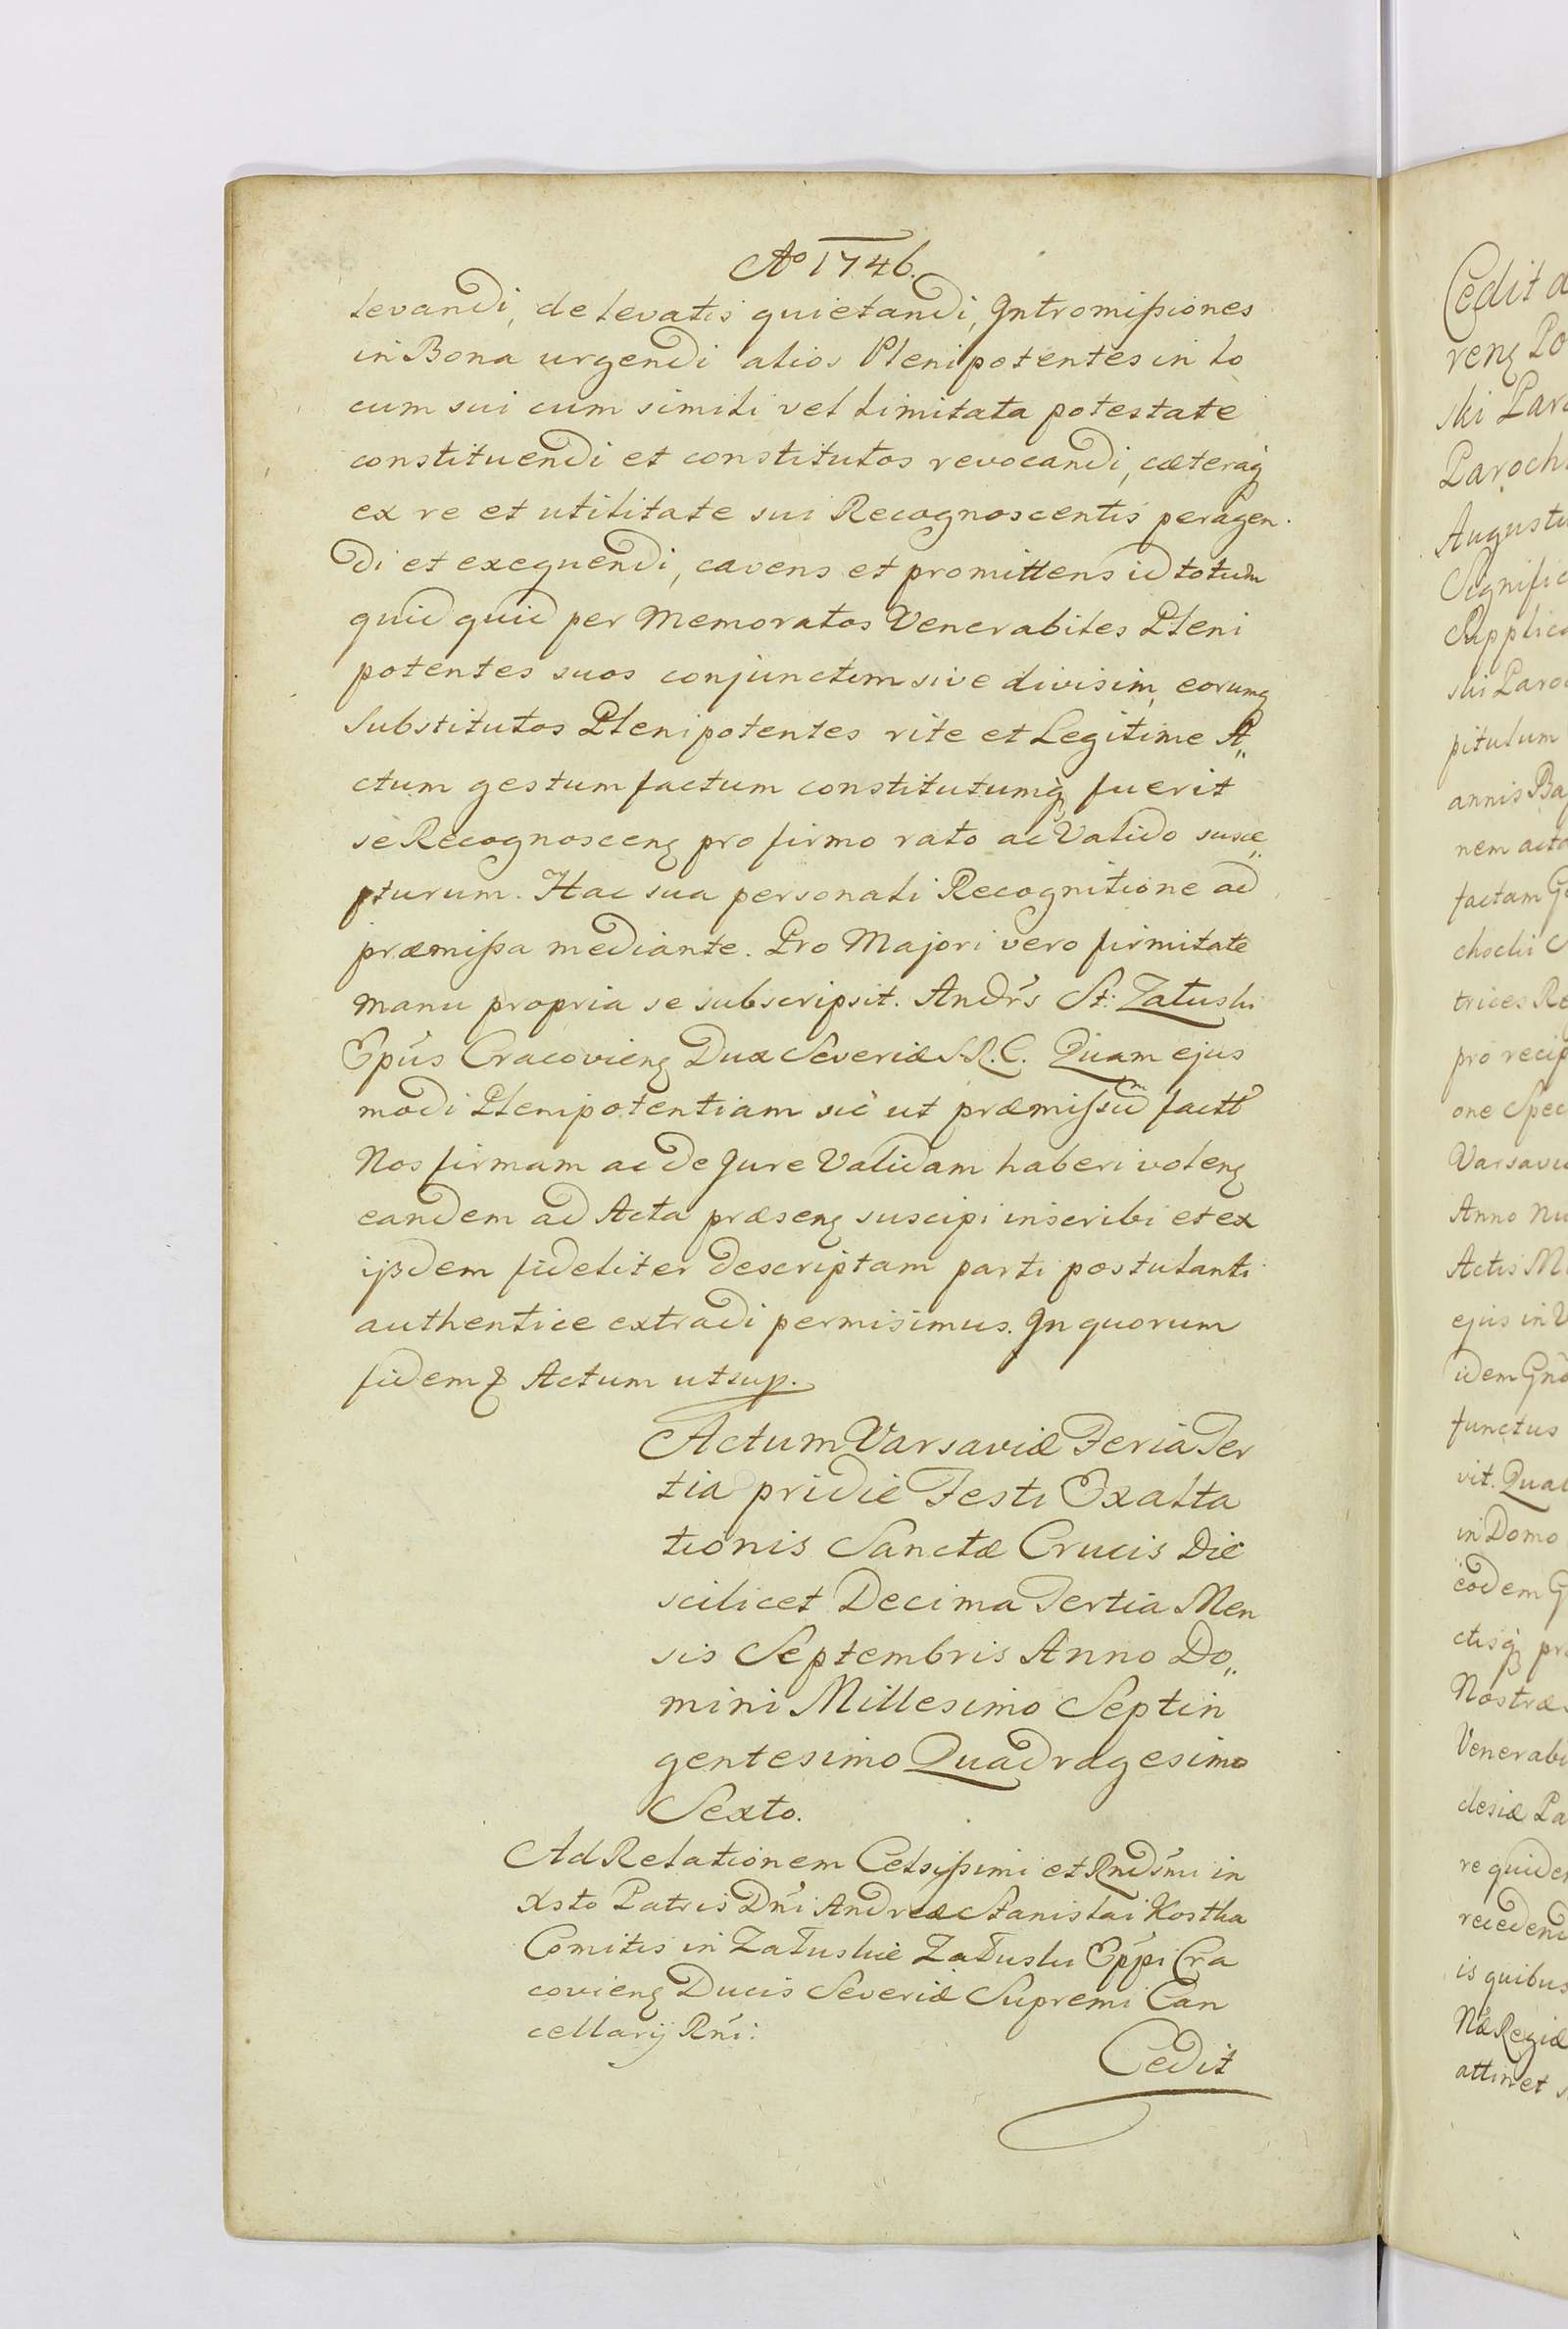 Ao 1746.
levandi, de levatis quietandi, Intromißiones
in Bona urgendi alios Plenipotentes in lo
cum sui cum simili vel limitata potestate
constituendi et constitutos revocandi, cæteraq
ex re et utilitate sui Recognoscentis peragen.
di et exequendi, cavens et promittens id totum
quid quid per Memoratos Venerabiles Pleni
potentes suos conjunctim sive divisim, eorumq
Substitutos Plenipotentes rite et Legitime A„
ctum gestum factum constitutumq fuerit
se Recognoscenę pro firmo rato ac Valido susce„
pturum. Hac sua personali Recognitione ad
præmißa mediante. Pro Majori vero firmitate
manu propria se subscripsit. Andŕs St: Załuski
Epús Cracovienę Dux Severiæ S.R.C. Quam ejus
modi Plenipotentiam sic ut præmissũ factt
Nos firmam ac de Jure Validam haberi volenę
eandem ad Acta præsenę suscipi inscribi et ex
ijsdem fideliter descriptam parti postulanti
authentice extradi permisimus. In quorum
fidem & Actum ut sup.
Actum Varsaviæ Feria Ter
tia pridie Festi Exalta
tionis Sanctæ Crucis Die
scilicet Decima Tertia Men
sis Septembris Anno Do„
mini Millesimo Septin
gentesimo Quadragesimo
Sexto.
Ad Relationem Celsißimi et Rnd́smi in
Xsto Patris Dńi Andreæ Stanislai Kostka
Comitis in Załuskie Załuski Eṕpi Cra
covienę Ducis Severiæ Supremi Can
cellarij Rńi:
Cedit
Cedit
renę
ski
Paroch
Augustu
Signific
Supplica
ski Paro
pitulum
annis
nem acto
factam
trices
pro recip
one Spec
Varsavi
Anno
Actis
ejus in
idem
functus
vit.
in Domo
eodem
ctisq
Nostræ
Venerabi
clesiæ
re quide
recedend
is quibus
Regiæ
attinet